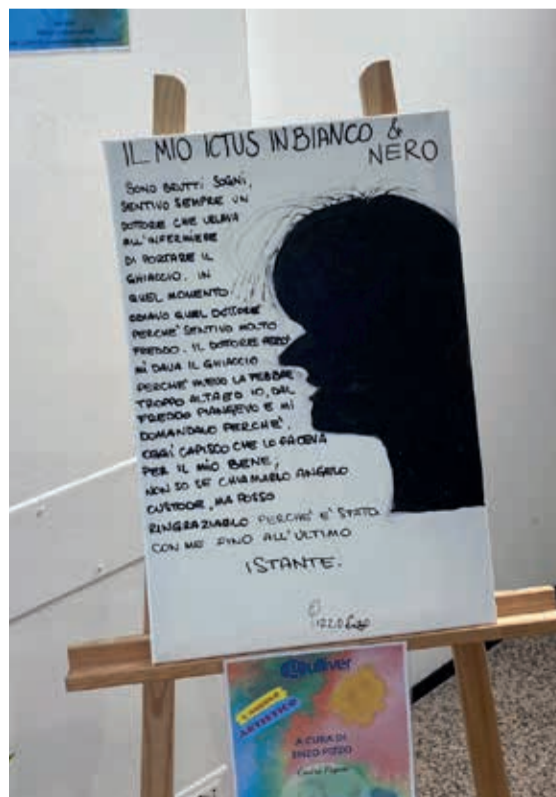 IL MIO ICTUS IN BIANCO &
NERO
SONO BRUTTI SOGNI,
SENTIVO SEMPRE UN
DOTTORE CHE URLAVA
ALL'INFERMIERE
DI PORTARE IL
GHIACCIO. IN
QUEL MOMENTO
ODIAVO QUEL DOTTORE
PERCHE' SENTIVO MOLTO
FREDDO. IL DOTTORE PERO'
MI DAVA IL GHIACCIO
PERCHE' AVEVO LA FEBBRE
TROPPO ALTA ED IO, DAL
FREDDO PIANGEVO E MI
DOMANDAVO PERCHE'.
OGGI CAPISCO CHE LO FACEVA
PER IL MIO BENE,
NON SO SE CHIAMARLO ANGELO
CUSTODE, MA POSSO
RINGRAZIARLO PERCHE' E' STATO
CON ME FINO ALL'ULTIMO
ISTANTE.
Gulliver
L'ANGOLO
ARTISTICO
A CURA DI
ENZO PIZZO